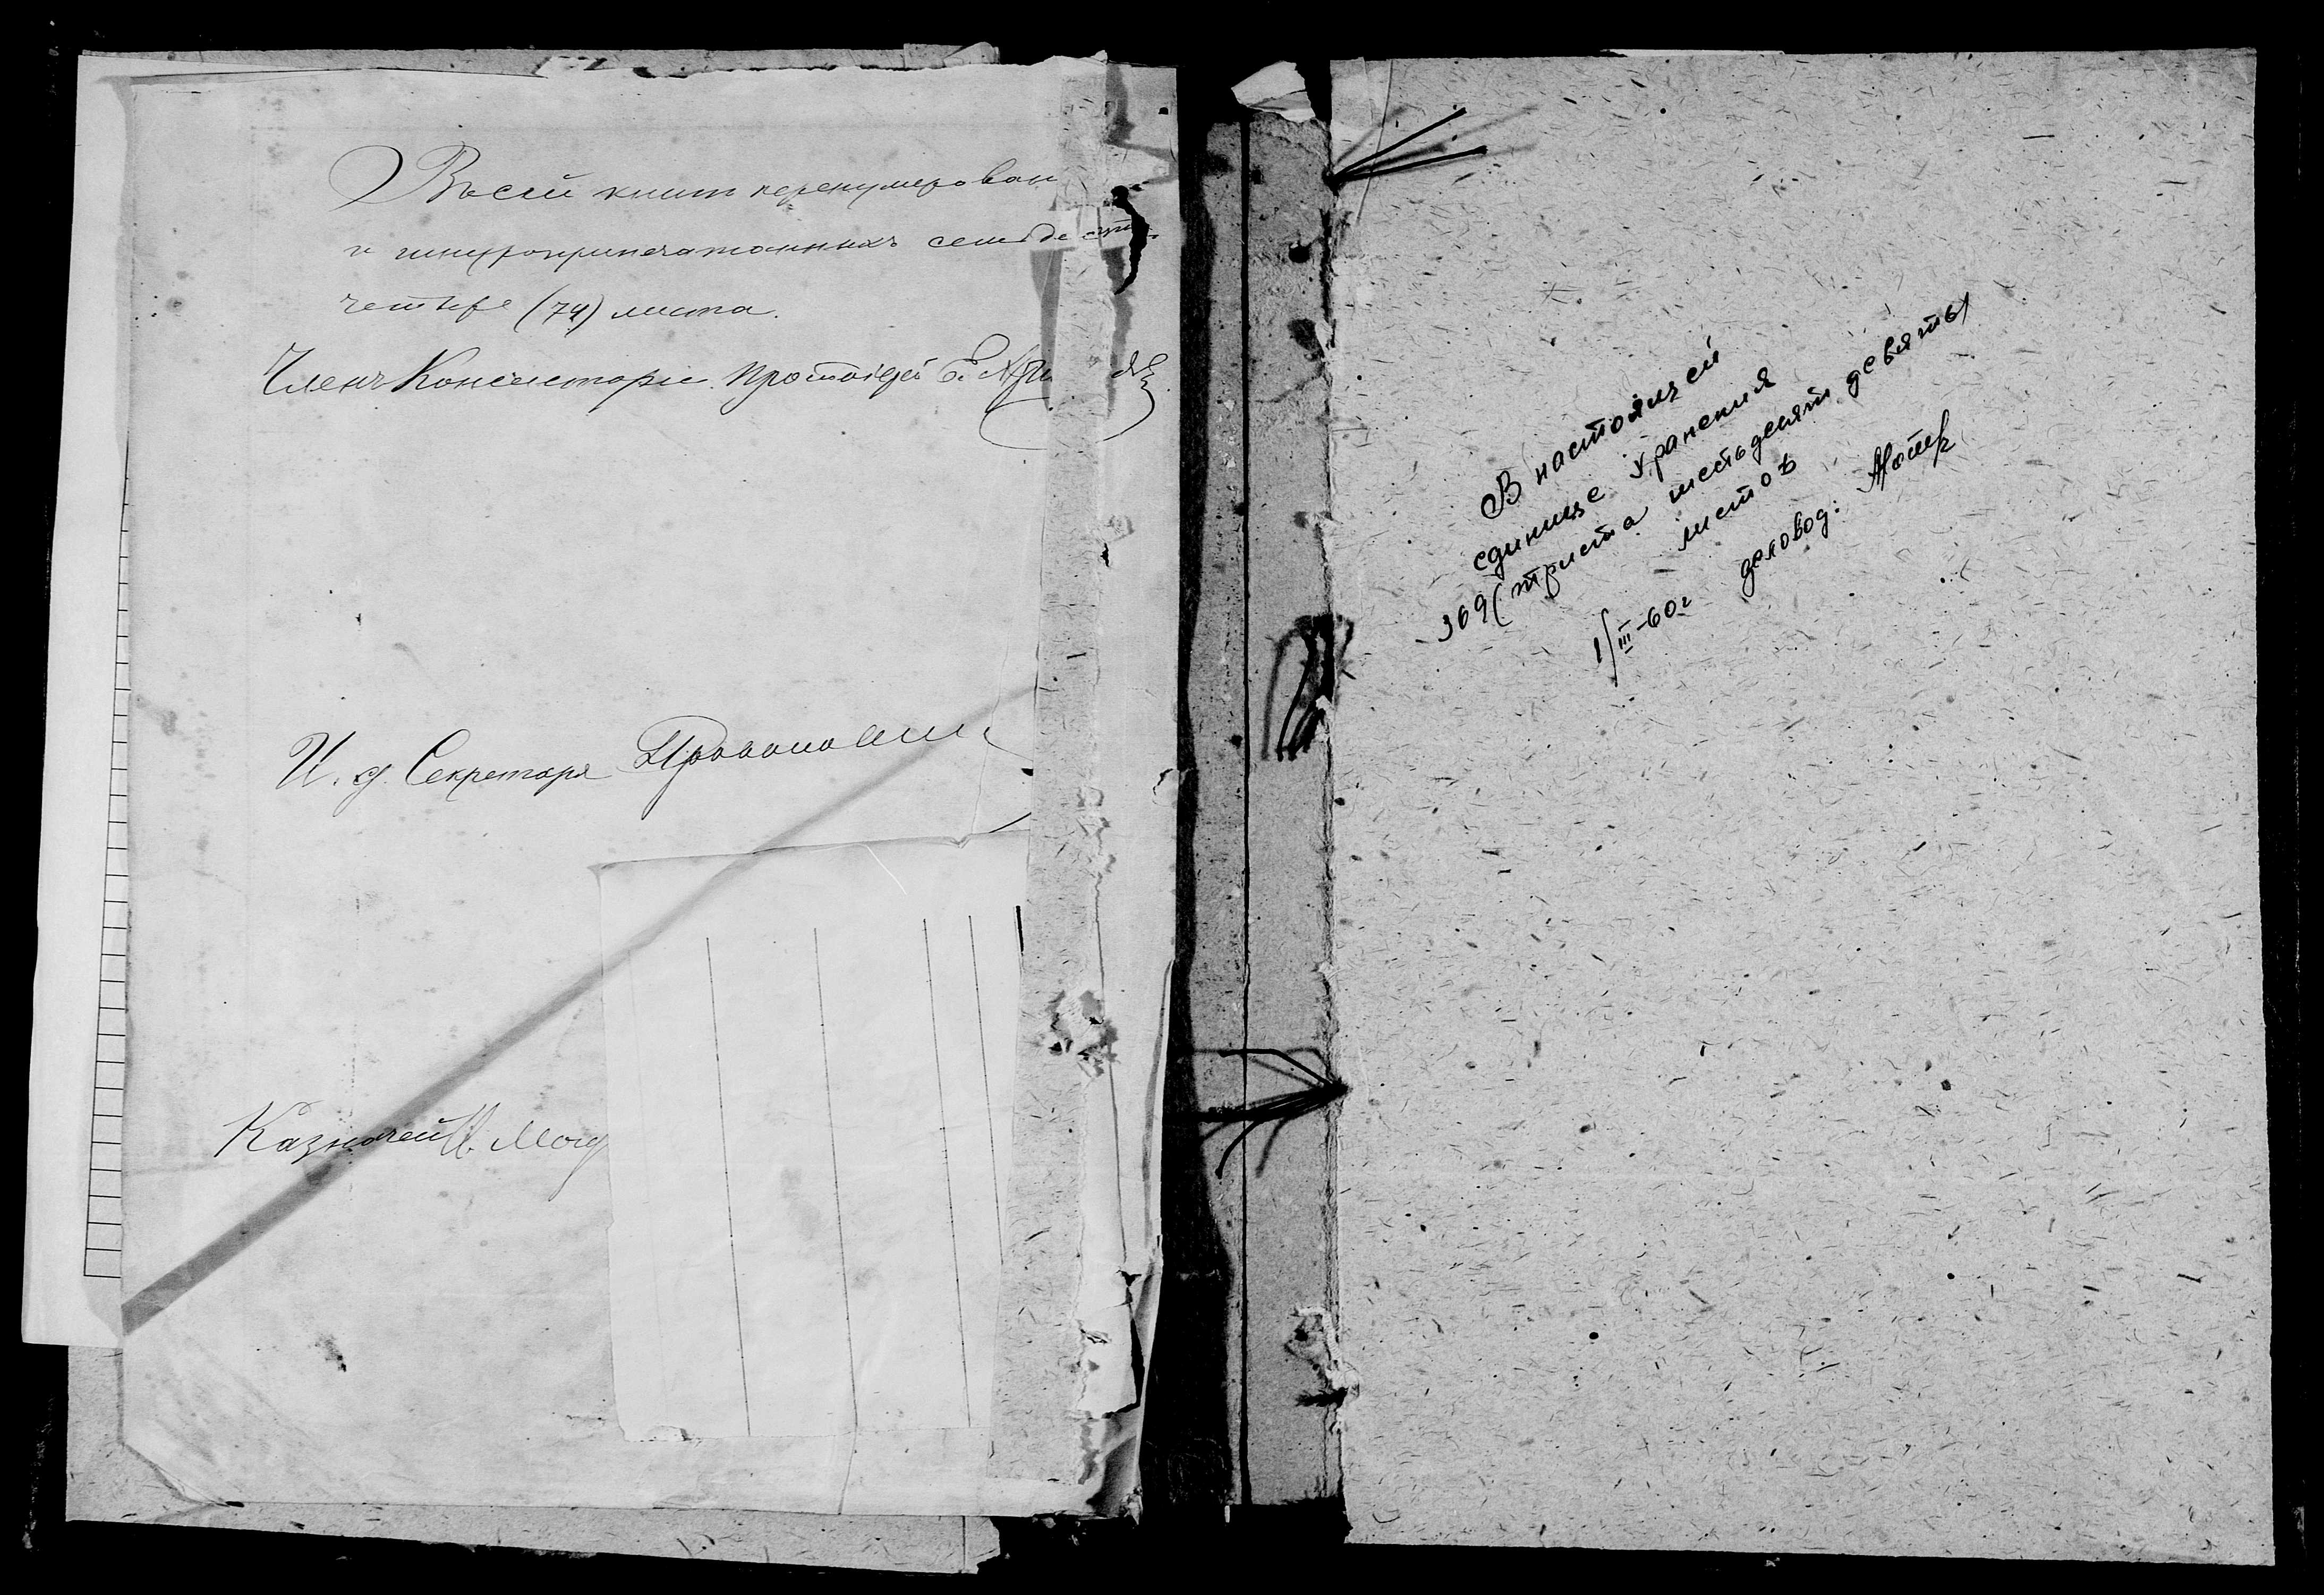 Въ сей книгѣ перенумерован
и шнуроприпечатанныхъ семьдесятъ
четыре (74) листа.
Членъ Консисторіи Протоіерей
И. д. Секретаря
Казначей И.
В настоящей
единице хранения
369 (триста шестьдесят девять)
листов
1/III-60г деловод: